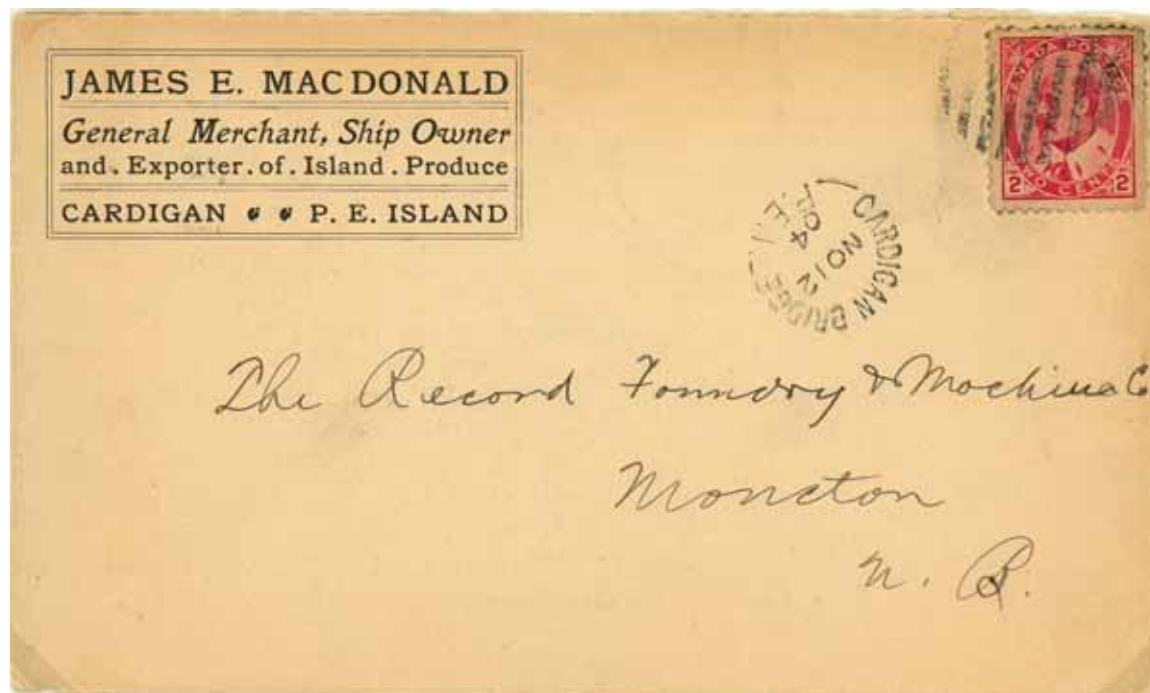 JAMES E. MACDONALD
General Merchant, Ship Owner
and. Exporter. of. Island. Produce
CARDIGAN P. E. ISLAND
CANADA POSTAGE
2 TWO CENTS 2
CARDIGAN BRIDGE
P.E.I.
NO 12
04
The Record Foundry & Machine Co
Moncton
N. B.